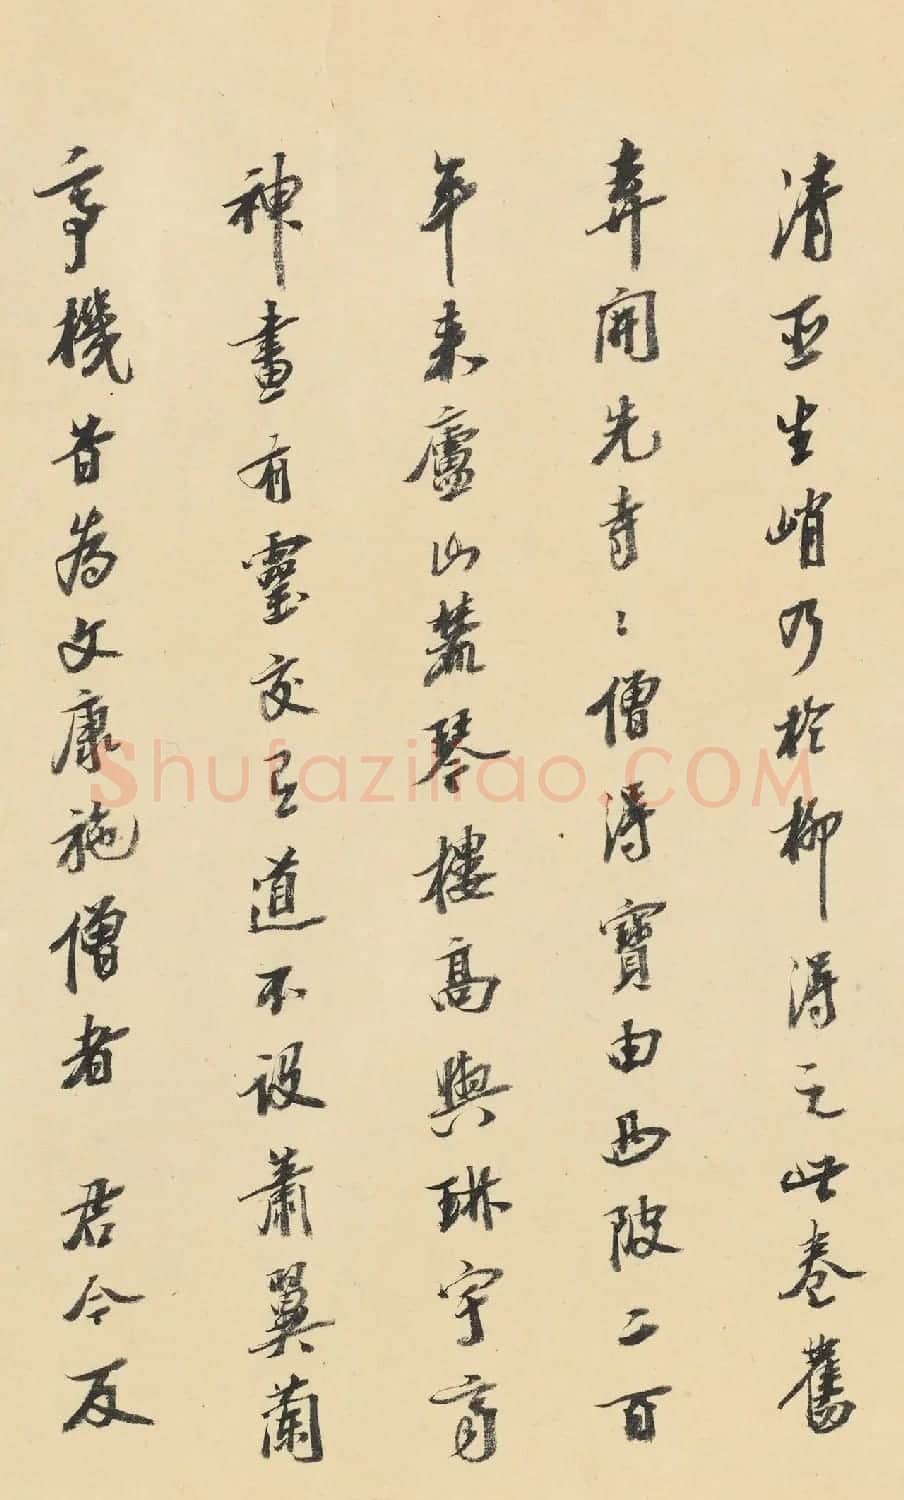 清生峭乃於柳得之此卷舊
弆開先寺〻僧得寶由西陂二百
年來廬山麓琴樓高與琳宇齊
神畫有靈交以道不設蕭翼蘭
亭機昔為文康施僧者 君今反
Shufaziliao.COM